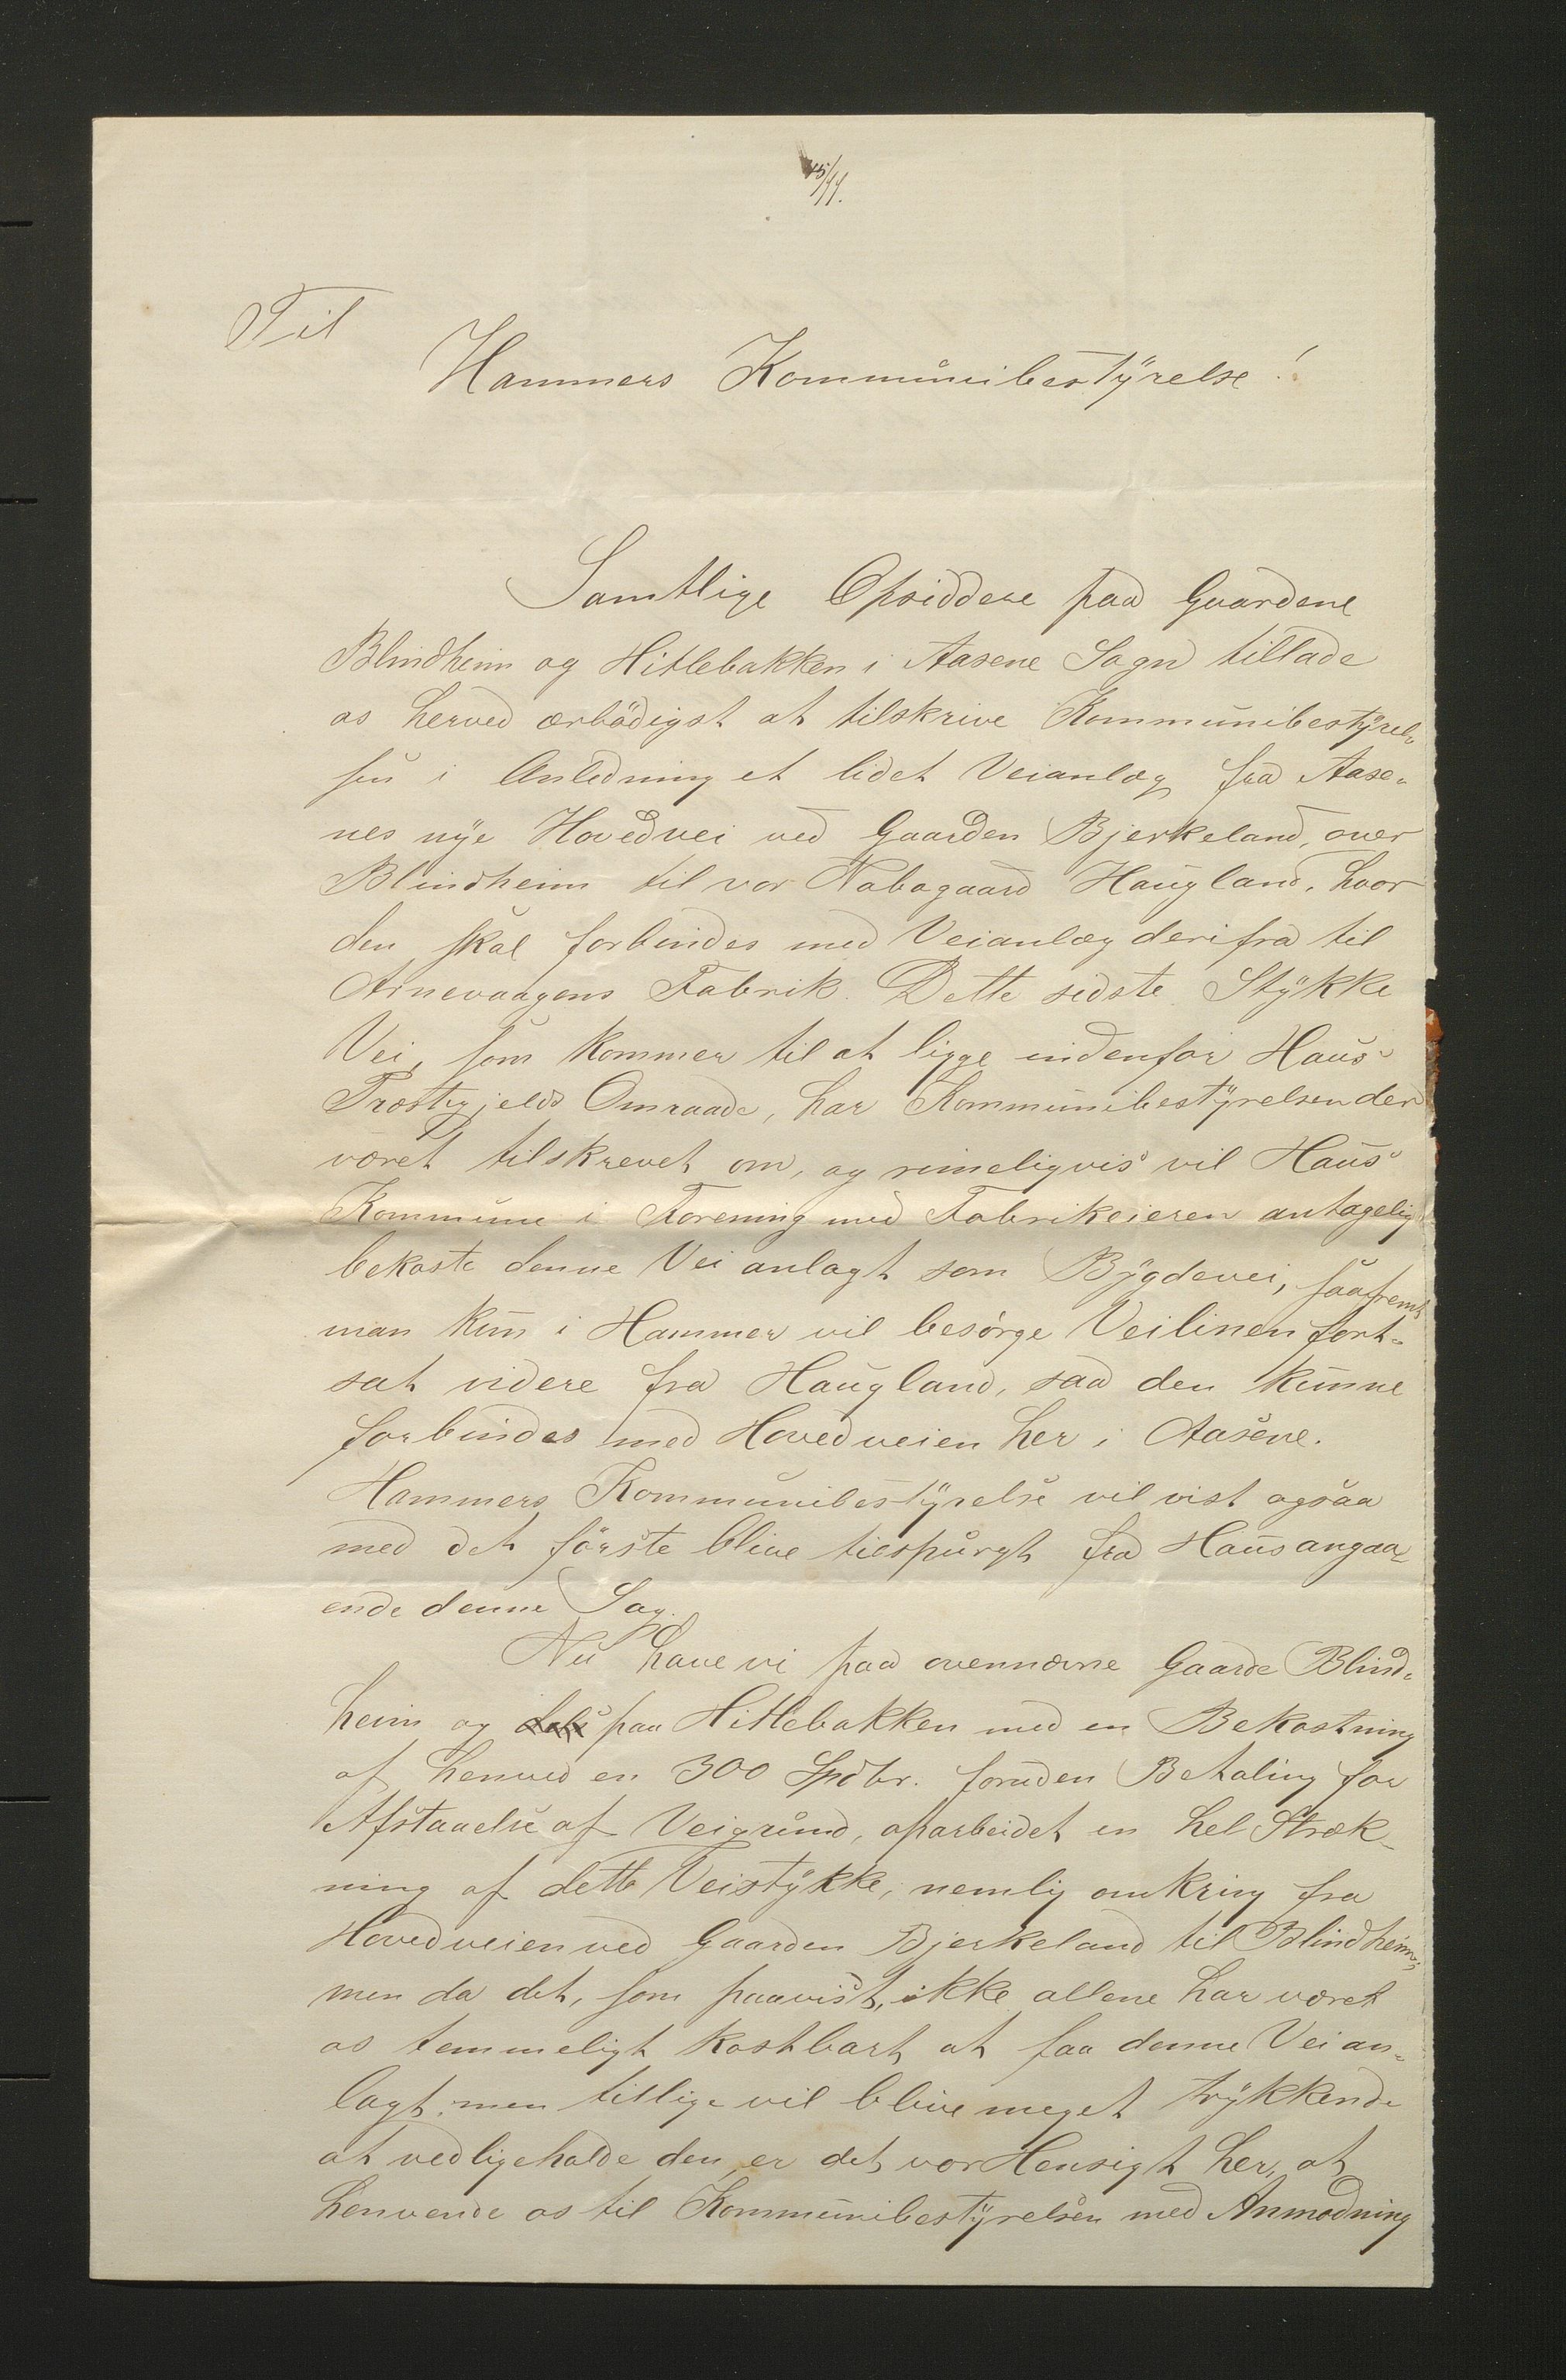 Til
Hammers Kommunibestyrelse!
Samtlige Opsiddere paa Gaardene
Blindheim og Hitlebakken i Aasene Sogn tillade
os herved ærbödigst at tilskrive Kommunibestyrel-
sen i Anledning et lidet Veianlæg fra Aase-
nes nye Hovedvei ved Gaarden Bjerkeland, over
Blindheim til vor Nabogaard Haugland, hvor
den skal forbindes med Veianlæg derifra til
Arnevaagens Fabrik. Dette sidste Stykke
Vei, som kommer til at ligge indenfor Haus
Præstegjelds Omraade, har Kommunibestyrelsen der
været tilskrevet om, og rimeligvis vil Haus
Kommune i Forening med Fabrikeieren antagelig
bekoste denne Vei anlagt som Bygdevei, saafremt
man kun i Hammer vil besørge Veilinen fort-
sat videre fra Haugland, saa den kunne
forbindes med Hovedveien her i Aasene.
Hammers Kommunibestyrelse vil vist ogsaa
med det förste blive tilspurgt fra Haus angaa-
ende denne Sag.
Nu have vi paa ovennævne Gaarde Blind-
heim og paa Hitlebakken med en Bekostning
af henved en 300 Spdlr. foruden Betaling for
Afstaaelse af Veigrund, oparbeidet en hel Stræk-
ning af dette Veistykke, nemlig omkring fra
Hovedveien ved Gaarden Bjerkeland til Blindheim;
men da det, som paavist, ikke allene har været
os temmeligt kostbart at faa denne Vei an-
lagt, men tillige vil blive meget trykkende
at vedligeholde den, er det vor Hensigt her, at
henvende os til Kommunibestyrelsen med Anmodning